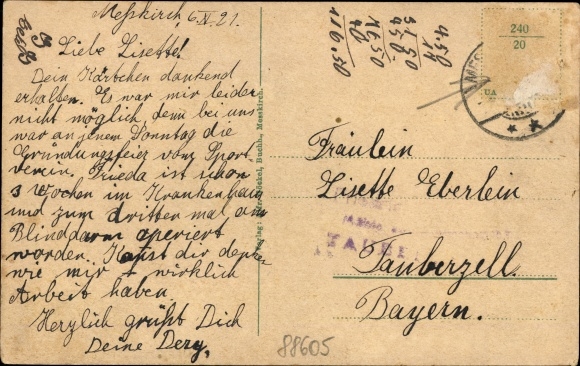 Messkirch 6.IV.21.
Liebe Lisette!
Dein Kärtchen dankend
erhalten. Es war mir leider
nicht möglich, denn bei uns
war an jenem Sonntag die
Gründungsfeier vom Sport
verein. Frieda ist schon
3 Wochen im Krankenhaus
und zum dritten mal am
Blinddarm operiert
worden. Kannst dir denken
wie mir wirklich
Arbeit haben.
Herzlich grüßt Dich
Deine
4.50
14
31.50
45.0
16.50
116.50
240
20
UA
Fräulein
Lisette Eberlein
Tauberzell.
Bayern.
Buchh., Messkirch.
88605